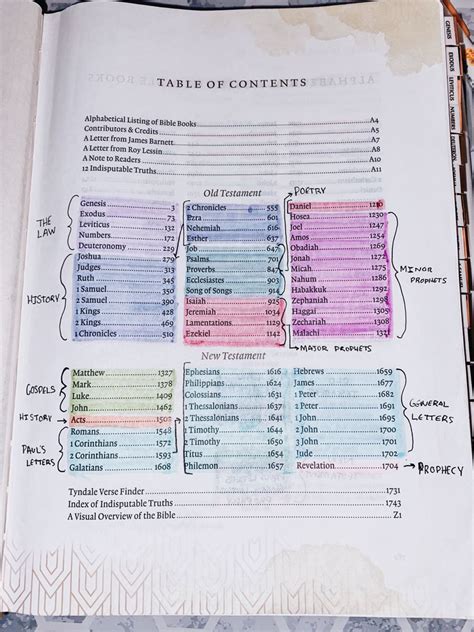 TABLE OF CONTENTS
Alphabetical Listing of Bible Books A4
Contributors & Credits A5
A Letter from James Barnett A7
A Letter from Roy Lessin A8
A Note to Readers A10
12 Indisputable Truths A11
Old Testament
POETRY
THE LAW
Genesis 3
Exodus 73
Leviticus 132
Numbers 172
Deuteronomy 229
HISTORY
Joshua 279
Judges 313
Ruth 345
1 Samuel 351
2 Samuel 390
1 Kings 428
2 Kings 469
1 Chronicles 510
2 Chronicles 555
Ezra 601
Nehemiah 616
Esther 637
Job 647
Psalms 701
Proverbs 847
Ecclesiastes 903
Song of Songs 914
Isaiah 925
Jeremiah 1034
Lamentations 1129
Ezekiel 1142
MAJOR PROPHETS
Daniel 1216
Hosea 1230
Joel 1247
Amos 1254
Obadiah 1269
Jonah 1272
Micah 1275
Nahum 1286
Habakkuk 1292
Zephaniah 1298
Haggai 1305
Zechariah 1308
Malachi 1371
MINOR
PROPHETS
New Testament
GOSPELS
Matthew 1327
Mark 1378
Luke 1409
John 1462
HISTORY
Acts 1502
PAUL'S
LETTERS
Romans 1548
1 Corinthians 1572
2 Corinthians 1593
Galatians 1608
Ephesians 1616
Philippians 1624
Colossians 1631
1 Thessalonians 1637
2 Thessalonians 1641
1 Timothy 1644
2 Timothy 1650
Titus 1654
Philemon 1657
Hebrews 1659
James 1677
1 Peter 1682
2 Peter 1691
1 John 1695
2 John 1700
3 John 1701
Jude 1702
GENERAL
LETTERS
Revelation 1704
PROPHECY
Tyndale Verse Finder 1731
Index of Indisputable Truths 1743
A Visual Overview of the Bible Z1
GENESIS
EXODUS
LEVITICUS
NUMBERS